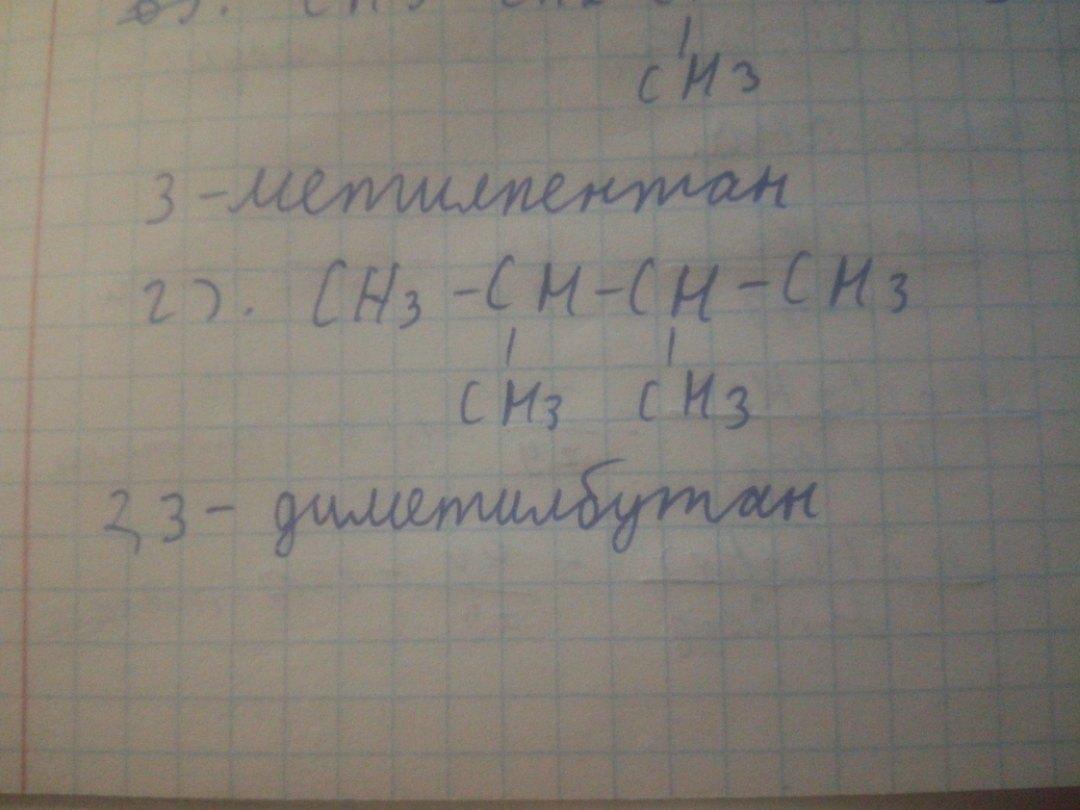 CH3
3-метилпентан
2). CH3-CH-CH-CH3
CH3 CH3
2,3- диметилбутан